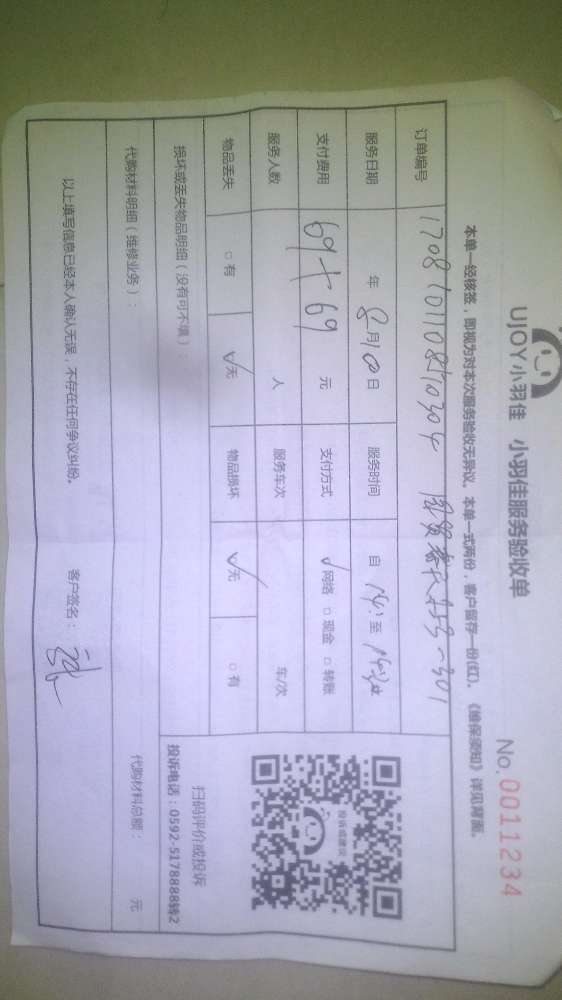 UJOY小羽佳 小羽佳服务验收单
No. 0011234
本单一经核签，即视为对本次服务验收无异议。本单一式两份，客户留存一份(红)。《维保须知》详见背面。
订单编号
服务日期 年 8月10日 服务时间 自 14: 至
支付费用 69+69 元 支付方式 √网络 □现金 □转账
服务人数 人 服务车次 车/次
物品丢失 □有 √无 物品损坏 √无 □有
投诉或建议
扫码评价或投诉
投诉电话：0592-5178888转2
损坏或丢失物品明细（没有可不填）
代购材料明细（维修业务）： 代购材料总额： 元
以上填写信息已经本人确认无误，不存在任何争议纠纷。 客户签名：